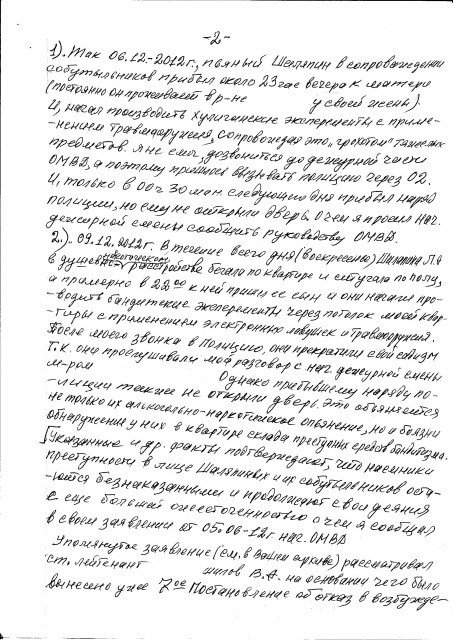 -2-
1). Так 06.12-2012г., пьяный Шаляпин в сопровождении
собутыльников прибыл около 23 час вечера к матери
(постоянно он проживает в р-не у своей жены)
И, начал производить хулиганские эксперименты с приме-
-нением травморужия, сопровождая это "грохотом" тяжелых
предметов. Я не смог, дозвониться до дежурной части
ОМВД, а поэтому пришлось вызывать полицию через 02.
И, только в 00ч 30 мин. следующего дня прибыл наряд
полиции, но ему не открыли дверь. О чем я просил нач.
дежурной смены сообщить руководству ОМВД.
2.). 09.12.2012г. В течение всего дня (воскресенье) Шаляпина Л.Я
в душевно расстройстве бегала по квартире и стучала по полу,
а примерно в 22 00 к ней пришел ее сын и они начали про-
-водить бандитские эксперименты через потолок моей квар-
-тиры с применением электронных ловушек и травморужия.
После моего звонка в полицию, они прекратили свой садизм
т.к. они прослушивали мой разговор с нач. дежурной смены
м-ром Однако прибывшему наряду по-
-лиции также не открыли дверь. Это объясняется
не только их алкогольно-наркотическое опьянение, но и боязни
обнаружения у них в квартире склада преступных средств бандитизма.
Указанные и др. факты подтверждают, что насильники
преступности в лице Шаляпиных и их собутыльников оста-
-ются безнаказанными и продолжают свои деяния
с еще большей ожесточенностью о чем я сообщал
в своем заявлении от 05.06-12г нач. ОМВД
Упомянутое заявление (см. в Вашем архиве) рассматривал
ст. лейтенант шилов В.А. на основании чего было
вынесено уже 7ое Постановление об отказ в возбужде-